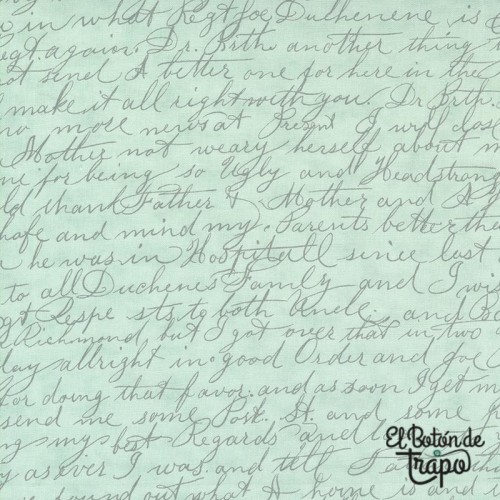 in what Regt Joe Duchenene is
Regt. again. Dr. Brth. another thing
not send A better one for here in the
make it all right with you. Dr Brthr
no more news at Present I will close
Mother not weary herself about m
me for being so Ugly and Headstrong
ld thank Father & Mother and A
hafe and mind my Parents better tha
he was in Hospitall since last
to all Duchenes Family and I wis
Respe sts to both Uncle. and
Richmond but I got over that in two
day allright in good Order and Joe
for doing that favor. and as soon I get m
send me some Post. St. and some
ng my best Regards and
as ever I was. and tell
found out what I
El Botón de
Trapo